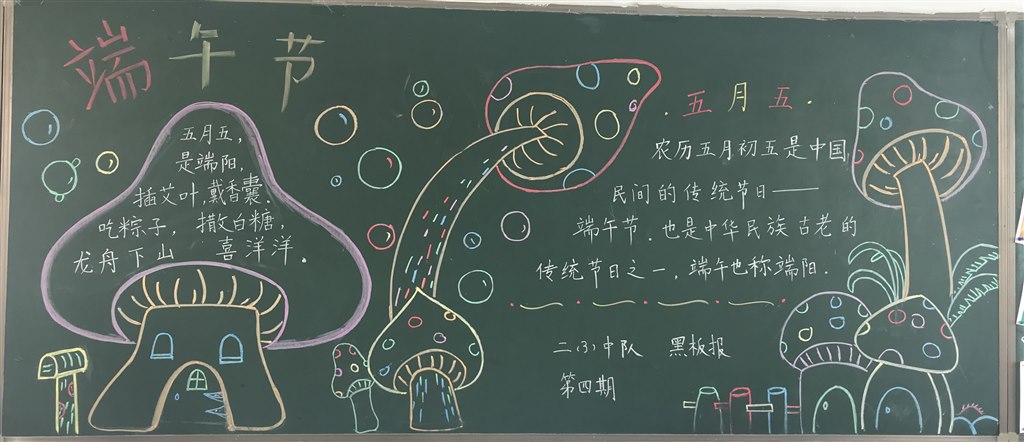 端午节
五月五，
是端阳，
插艾叶，戴香囊．
吃粽子，撒白糖，
龙舟下山 喜洋洋．
·五月五·
农历五月初五是中国
民间的传统节日——
端午节．也是中华民族古老的
传统节日之一，端午也称端阳．
二（3）中队 黑板报
第四期